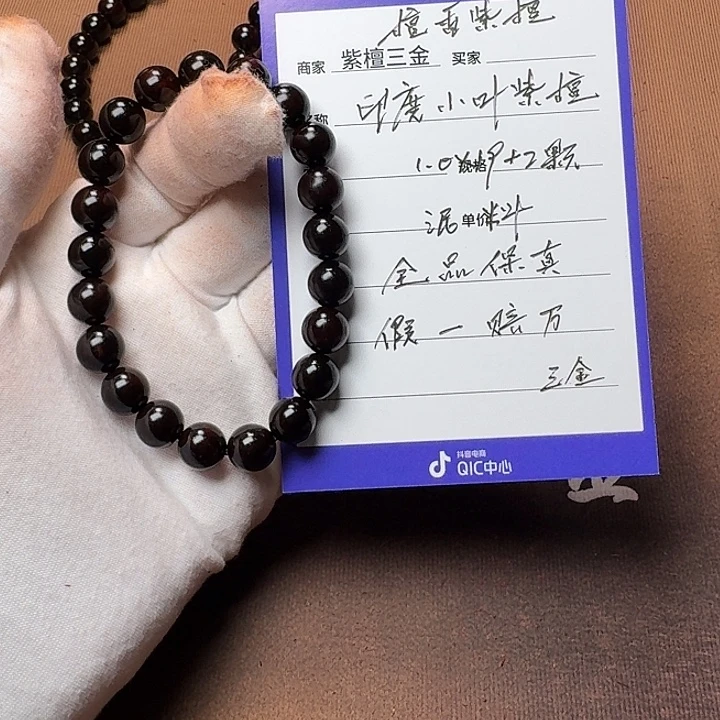 檀香紫檀
商家 紫檀三金 买家
名称 印度小叶紫檀
1.0×19+2颗 规格
泥料 单价
全品保真
假一赔万
三金
抖音电商
QIC中心